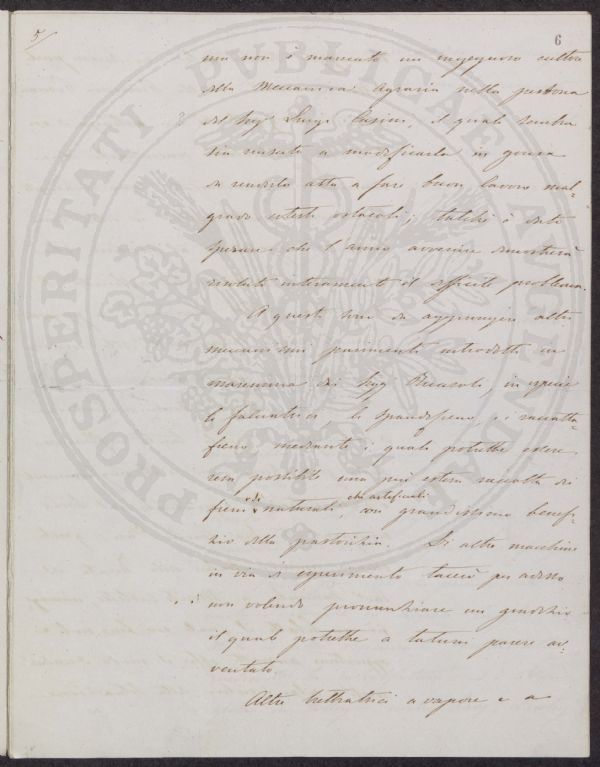 5/
6
ma non è mancato un ingegnoso cultore
della Meccanica Agraria nella persona
del Sigr Luigi il quale sembra
sia riuscito a modificarla in guisa
da renderla atta a fare buon lavoro mal-
grado cotesti ostacoli; talchè è dato
sperare che l'anno avvenire mostrerà
risoluto interamente il difficile problema.
A questi sono da aggiungersi altri
meccanismi parimente introdotti in
maremma dai Sigg Ricasoli, in specie
le falciatrici lo spandifieno, e i raccatta-
fieno mediante i quali potrebbe essere
resa possibile una più estesa raccolta dei
fieni naturali, che artificiali con grandissimo benefi-
zio della pastorizia. Di altre macchine
in via di esperimento taccio per adesso
non volendo pronunziare un giudizio
il quale potrebbe a taluni parere av-
ventato.
Altre trebbiatrici a vapore e a
PROSPERITATI PUBLICAE AUGENDAE